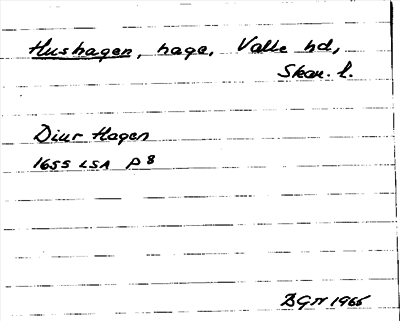 Hushagen, hage, Valle hd,
Skar. l.
Diur Hagen
1655 LSA P 8
BGN 1966